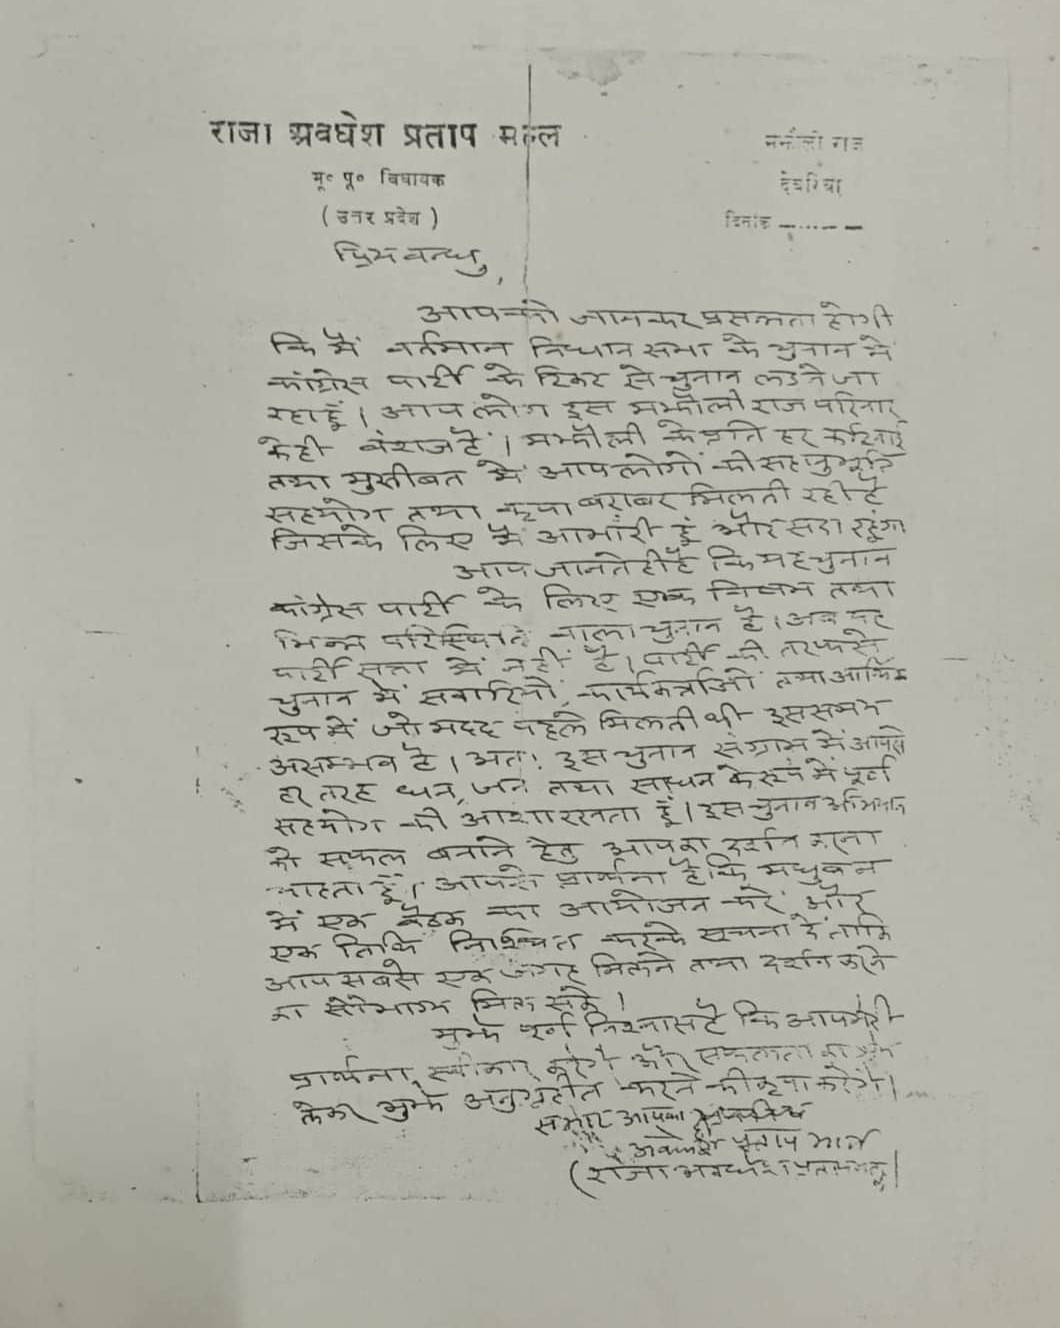 राजा अवधेश प्रताप मल्ल
मझौली राज
भू० पू० विधायक
देवरिया
(उत्तर प्रदेश)
दिनांक
प्रिय बन्धु,
आपको जानकर प्रसन्नता होगी
कि मैं वर्तमान विधान सभा के चुनाव में
कांग्रेस पार्टी के टिकट से चुनाव लडने जा
रहा हूँ। आप लोग इस मझौली राज परिवार
के ही वंशज हैं। मझौली के प्रति हर कठिनाई
तथा मुसीबत में आप लोगों की सहानुभूति
सहयोग तथा कृपा बराबर मिलती रही है
जिसके लिए मैं आभारी हूं और सदा रहूंगा
आप जानते ही हैं कि यह चुनाव
कांग्रेस पार्टी के लिए एक विषम तथा
भिन्न परिस्थिति वाला चुनाव है। अब यह
पार्टी सत्ता में नहीं है। पार्टी की तरफ से
चुनाव में सवारियों, कार्यकर्त्ताओं तथा आर्थिक
रूप में जो मदद पहले मिलती थी इस समय
असम्भव है। अतः इस चुनाव संग्राम में आपसे
हर तरह धन, जन तथा साधन के रूप में पूर्ण
सहयोग की आशा रखता हूं। इस चुनाव अभियान
को सफल बनाने हेतु आपका दर्शन करना
चाहता हूँ। आपसे प्रार्थना है कि मधुबन
में एक बैठक का आयोजन करें और
एक तिथि निश्चित करके सूचना दें ताकि
आप सबसे एक जगह मिलने तथा दर्शन करने
का सौभाग्य मिल सके।
मुझे पूर्ण विश्वास है कि आप मेरी
प्रार्थना स्वीकार करेंगे और सफलता का
लेकर मुझे अनुग्रहीत करने की कृपा करेंगे।
सभार आपका
अवधेश प्रताप मल्ल
(राजा अवधेश प्रताप मल्ल)